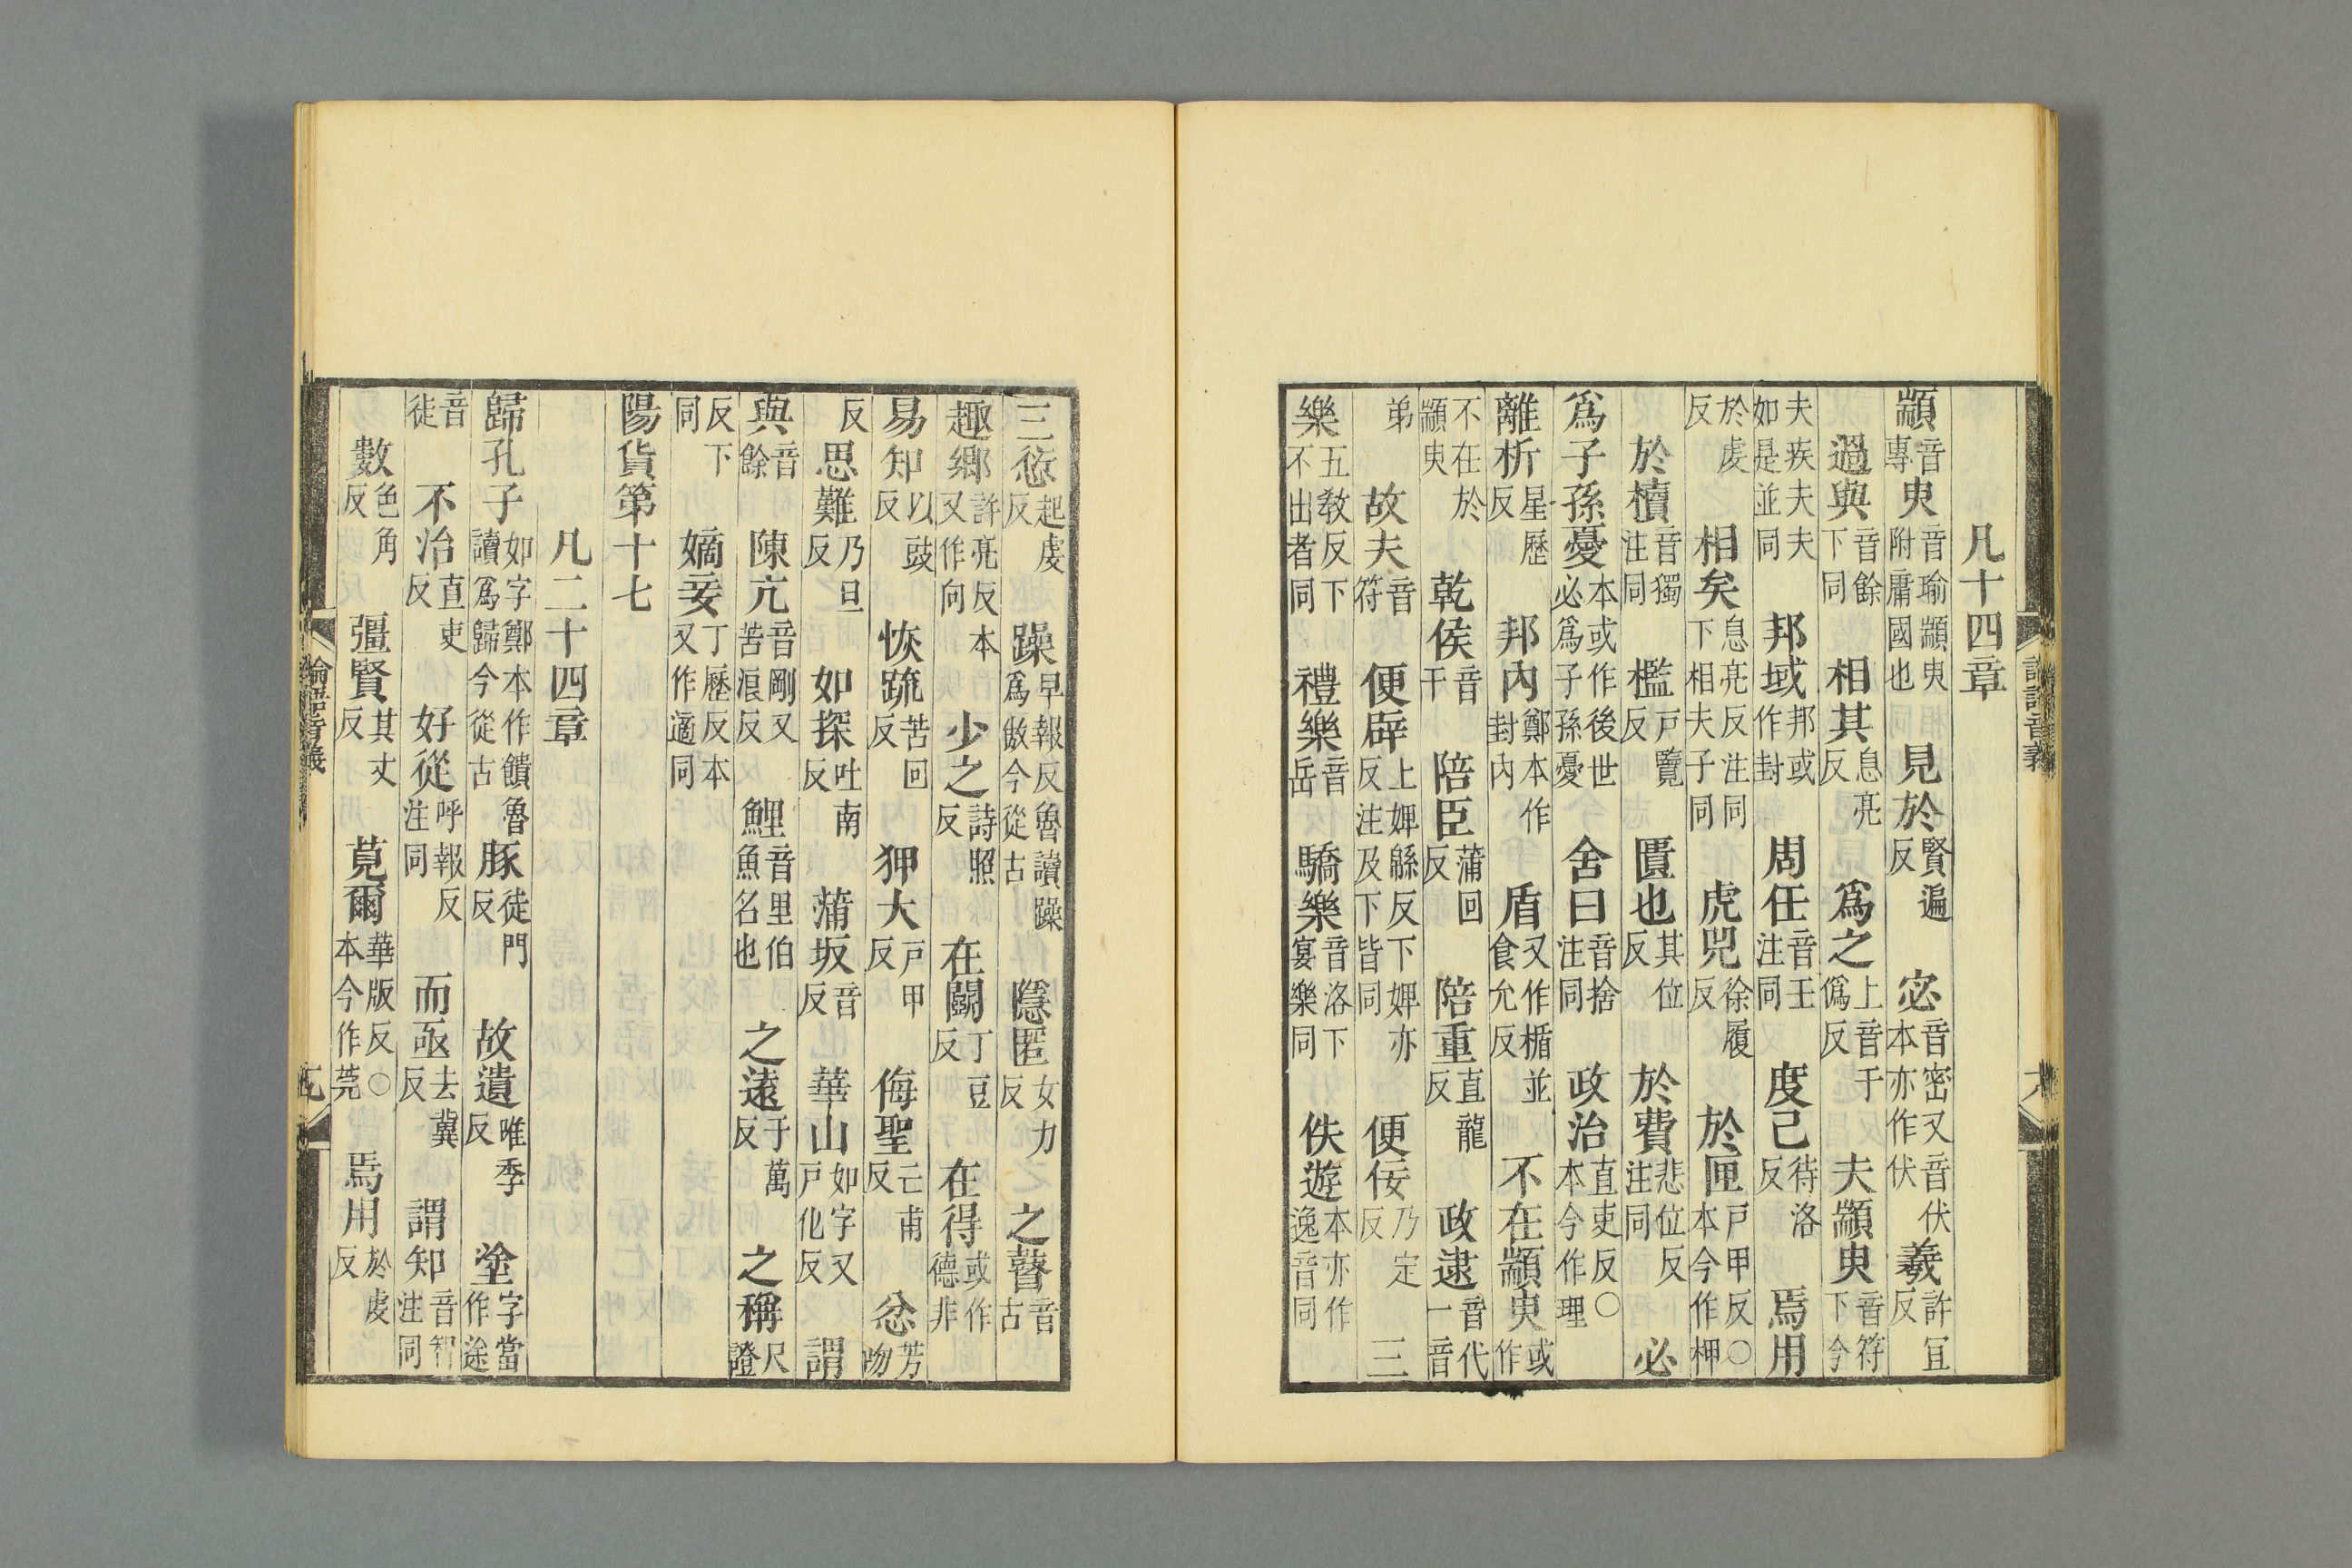 凡十四章
顓音專臾音瑜顓臾附庸國也見於賢遍反宓音密又音伏本亦作伏羲許宜反
過與音餘下同相其息亮反爲之上音于僞反夫顓臾音符下今
夫疾夫夫如是並同邦域邦或作封周任音壬注同度己待洛反焉用
於虔反相矣息亮反注同下相夫子同虎兕徐履反於匣戶甲反○本今作柙
於櫝音獨注同檻戶覽反匱也其位反於費悲位反注同必
爲子孫憂本或作後世必爲子孫憂舍曰音捨注同政治直吏反○本今作理
離析星歷反邦內鄭本作封內盾又作楯並食允反不在顓臾或作
不在於顓臾乾侯音干陪臣蒲回反陪重直龍反政逮音代一音
弟故夫音符便辟上婢緜反下婢亦反注及下皆同便佞乃定反三
樂五敎反下不出者同禮樂音岳驕樂音洛下宴樂同佚遊本亦作逸音同
三愆起虔反躁早報反魯讀躁爲傲今從古隱匿女力反之瞽音古
趣鄉許亮反本又作向少之詩照反在鬭丁豆反在得或作德非
易知以豉反恢疏苦回反狎大戶甲反侮聖亡甫反忿芳吻
反思難乃旦反如探吐南反蒲坂音反華山如字又戶化反謂
與音餘陳亢音剛又苦浪反鯉音里伯魚名也之遠于萬反之稱尺證
反下同嫡妾丁歷反本又作適同
陽貨第十七
凡二十四章
歸孔子如字鄭本作饋魯讀爲歸今從古豚徒門反故遺唯季反塗字當作途
音徒不治直吏反好從呼報反注同而亟去冀反謂知音智注同
數色角反彊賢其丈反莧爾華版反○本今作莞焉用於虔反
論語音義